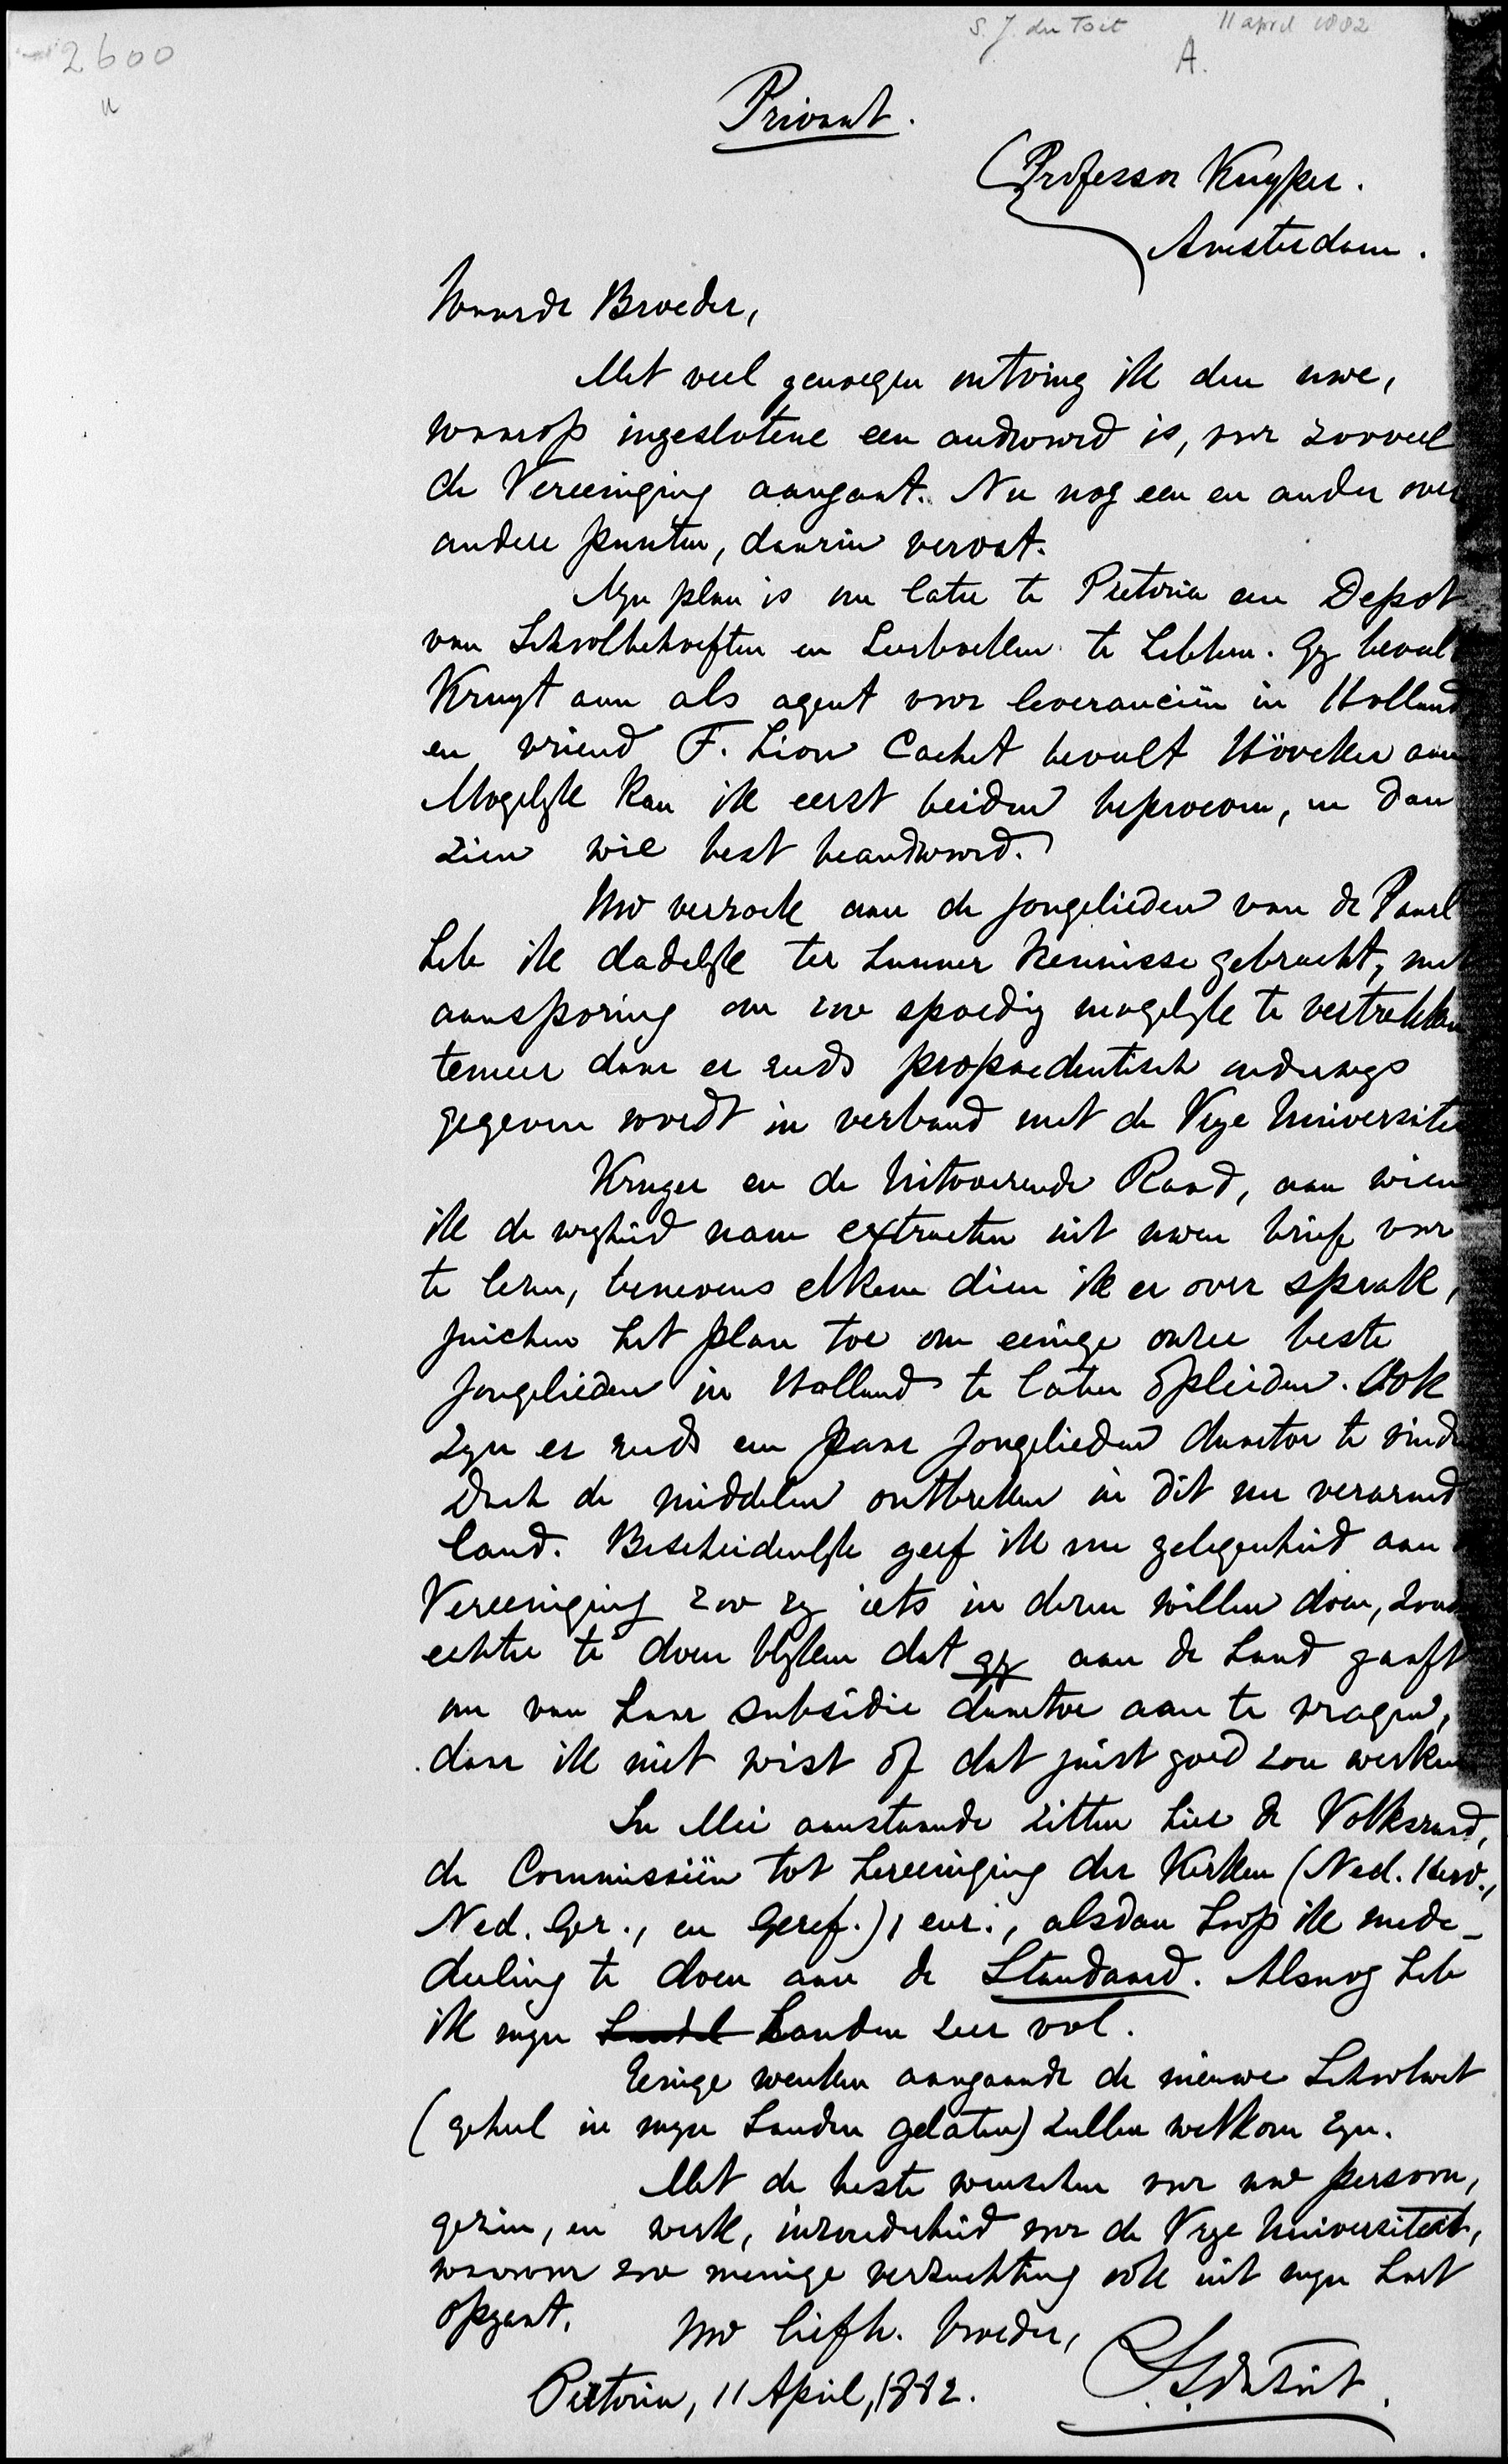 2600
S. J. du Toit 11 april 1882
A.
Privaat.
Professor Kuyper.
Amsterdam.
Waarde Broeder,
Met veel genoegen ontving ik den uwe,
waarop ingeslotene een andwoord is, voor zooveel
de Vereeniging aangaat. Nu nog een en ander over
andere punten, daarin vervat.
Myn plan is om later te Pretoria een Depot
van Schoolbehoeften en Leerboeken te hebben. Gy beveel
Kruyt aan als agent voor leverancien in Holland
en vriend F. Lion Cachet beveelt Höveker aan
Mogelyk kan ik eerst beiden beproeven, en dan
zien wie best beandwoord.
Uw verzoek aan de jongelieden van de Paarl
heb ik dadelyk ter hunner kennisse gebracht, met
aansporing om zoo spoedig mogelyk te vertrekken
temeer daar er reeds propaedeutisch onderwys
gegeven wordt in verband met de Vrye Universitei
Kruger en de Uitvoerende Raad, aan wien
ik de vryheid nam extracten uit uwen brief voor
te lezen, benevens elkeen dien ik er over sprak,
juichen het plan toe om eenige onzer beste
jongelieden in Holland te laten opleiden. Ook
zyn er reeds een paar jongelieden daartoe te vinde
Doch de middelen ontbreken in dit nu verarmd
land. Bescheidenlyk geef ik nu gelegenheid aan
Vereeniging zoo zy iets in dezen willen doen, zond
echter te doen blyken dat gy aan de hand gaaft
om van haar subsidie daartoe aan te vragen,
daar ik niet wist of dat juist goed zou werken
In Mei aanstaande zitten hier de Volksraad,
de Commissiën tot hereeniging der Kerken (Ned. Herv.,
Ned. Ger., en Geref.), enz., alsdan hoop ik mede-
deeling te doen aan de Standaard. Alsnog heb
ik myn handen zeer vol.
Eenige wenken aangaande de nieuwe Schoolwet
(geheel in myn handen gelaten) zullen welkom zyn.
Met de beste wenschen voor uw persoon,
gezin, en werk, inzonderheid voor de Vrye Universiteit,
waarvoor zoo menige verzuchting ook uit myn hart
opgaat. Uw liefh. broeder,
Pretoria, 11 April, 1882. S. J. du Toit.